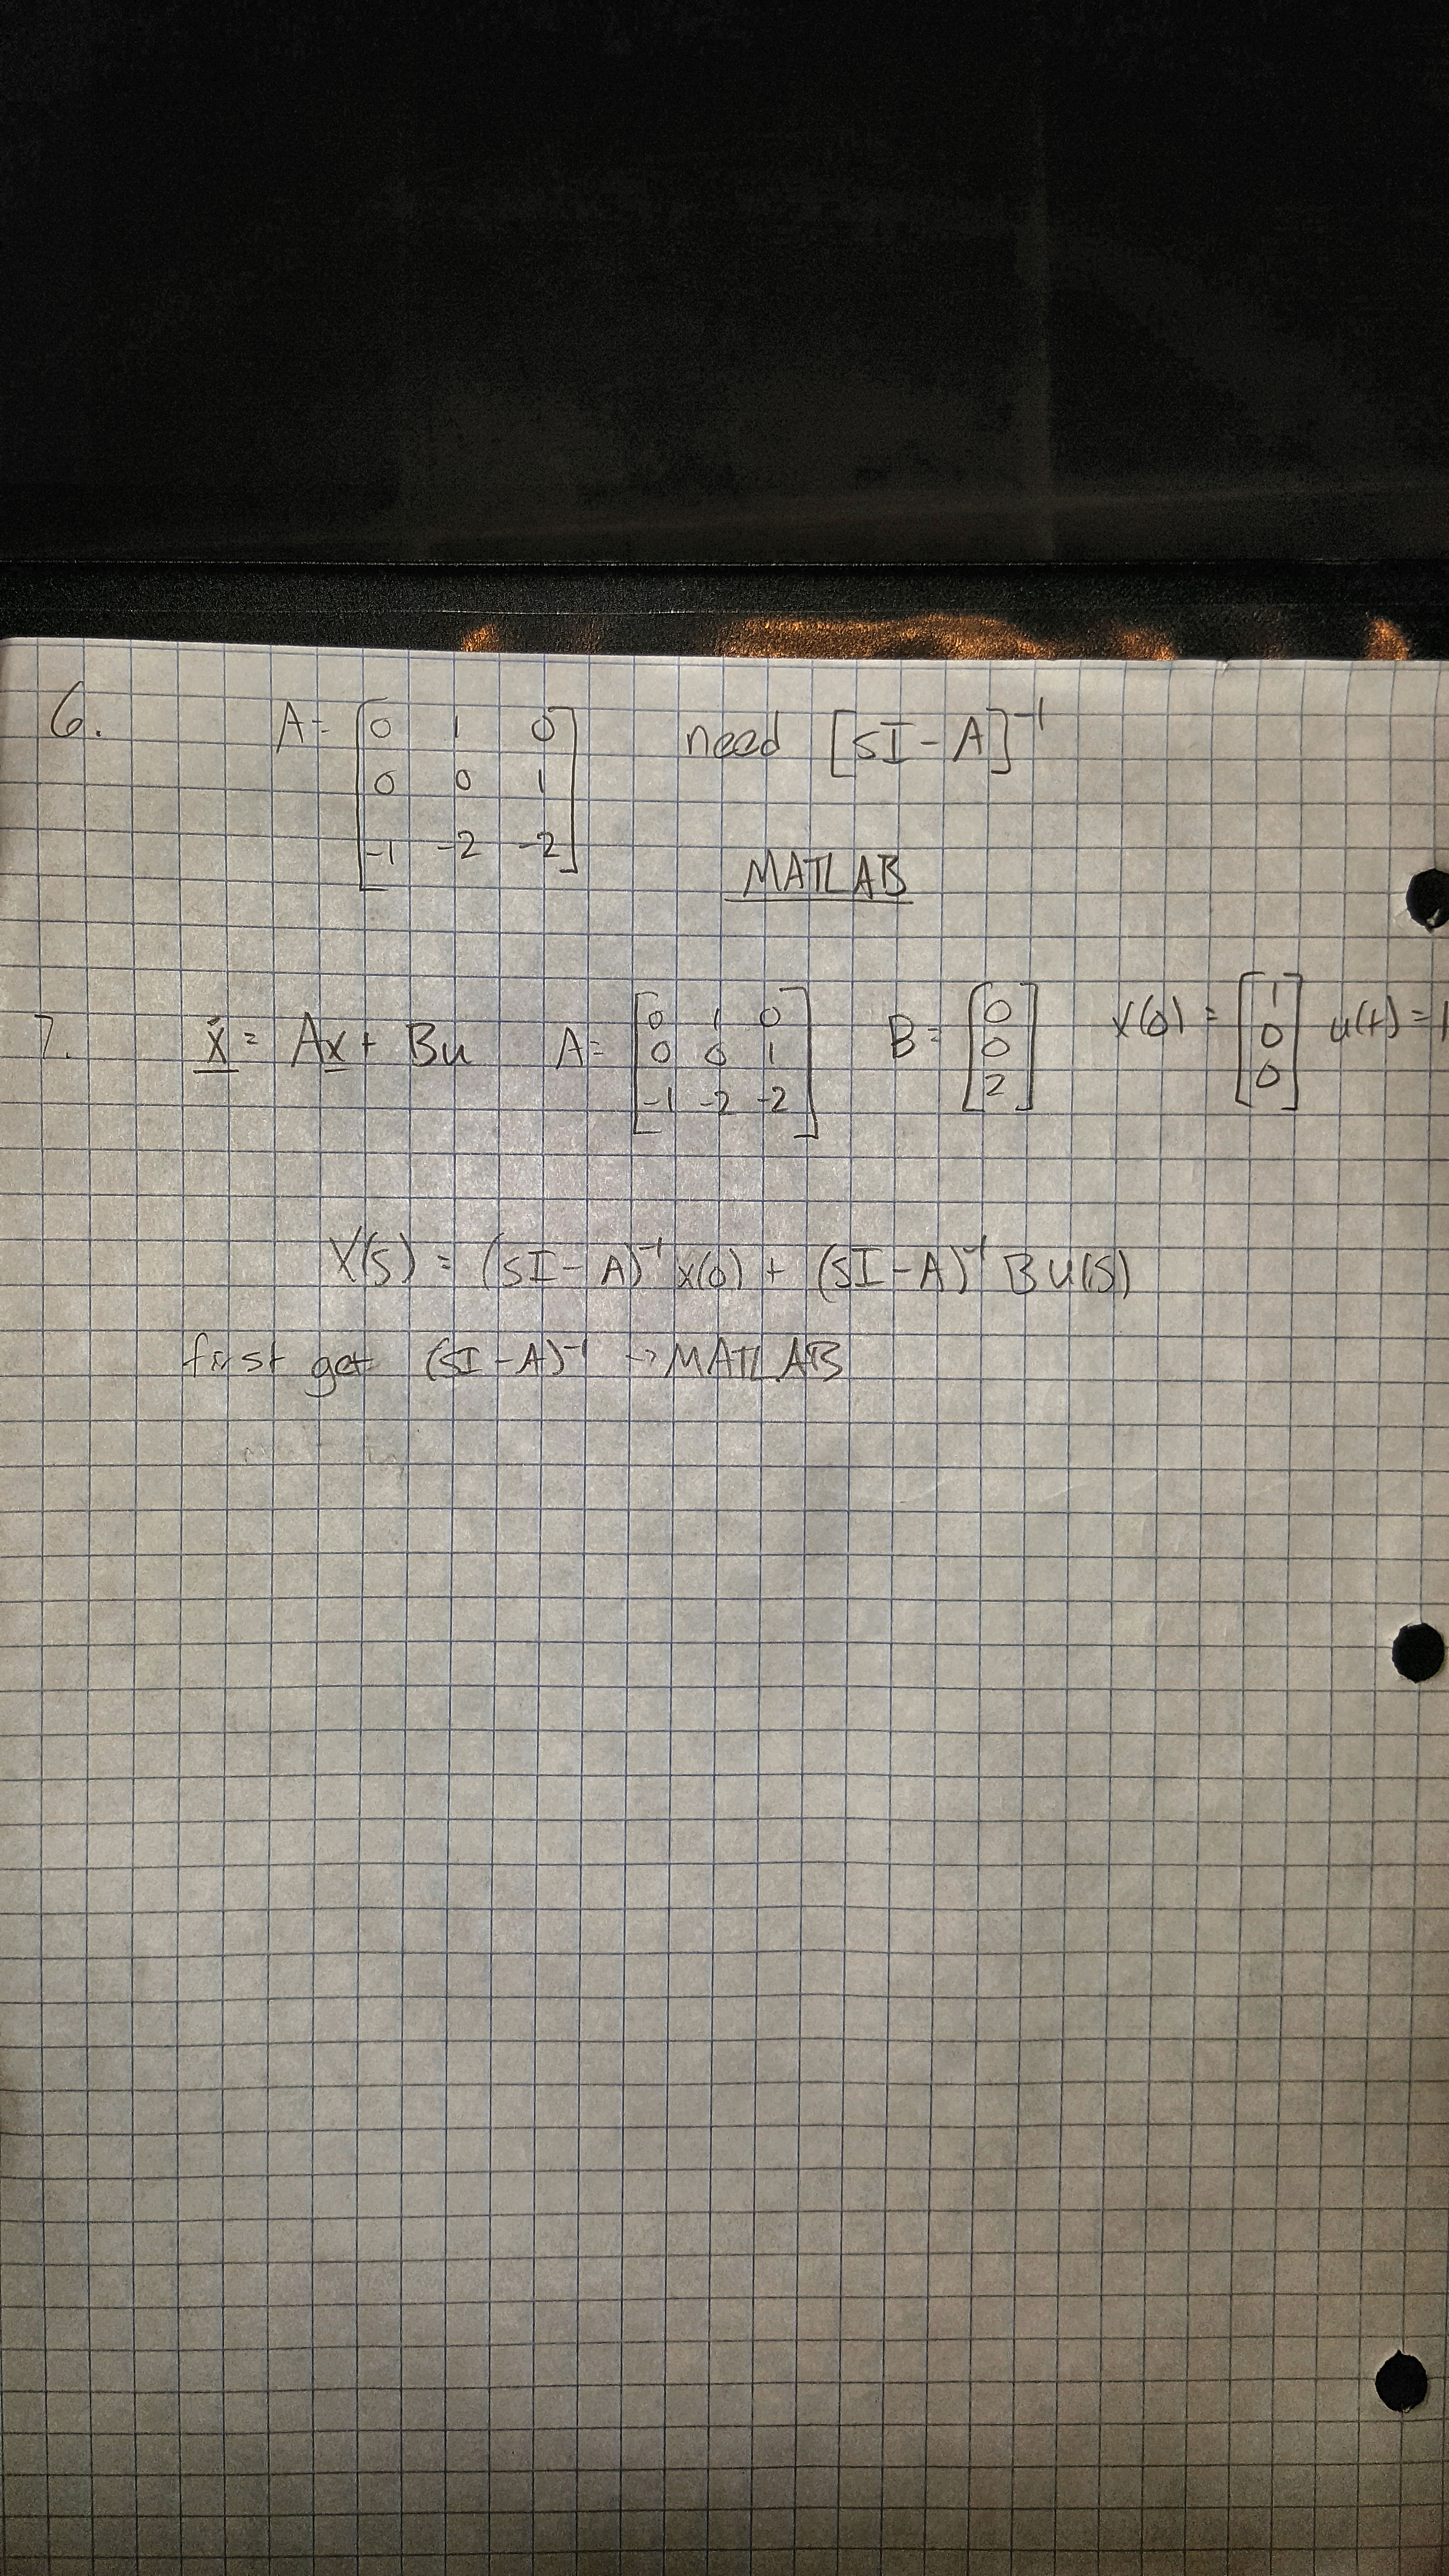 6. A = [0 1 0; 0 0 1; -1 -2 -2] need [SI - A]⁻¹
MATLAB
7. ẋ = Ax + Bu A = [0 1 0; 0 0 1; -1 -2 -2] B = [0; 0; 2] x(0) = [1; 0; 0] u(t) = 1
X(s) = (SI - A)⁻¹ x(0) + (SI - A)⁻¹ B u(s)
first get (SI - A)⁻¹ -> MATLAB